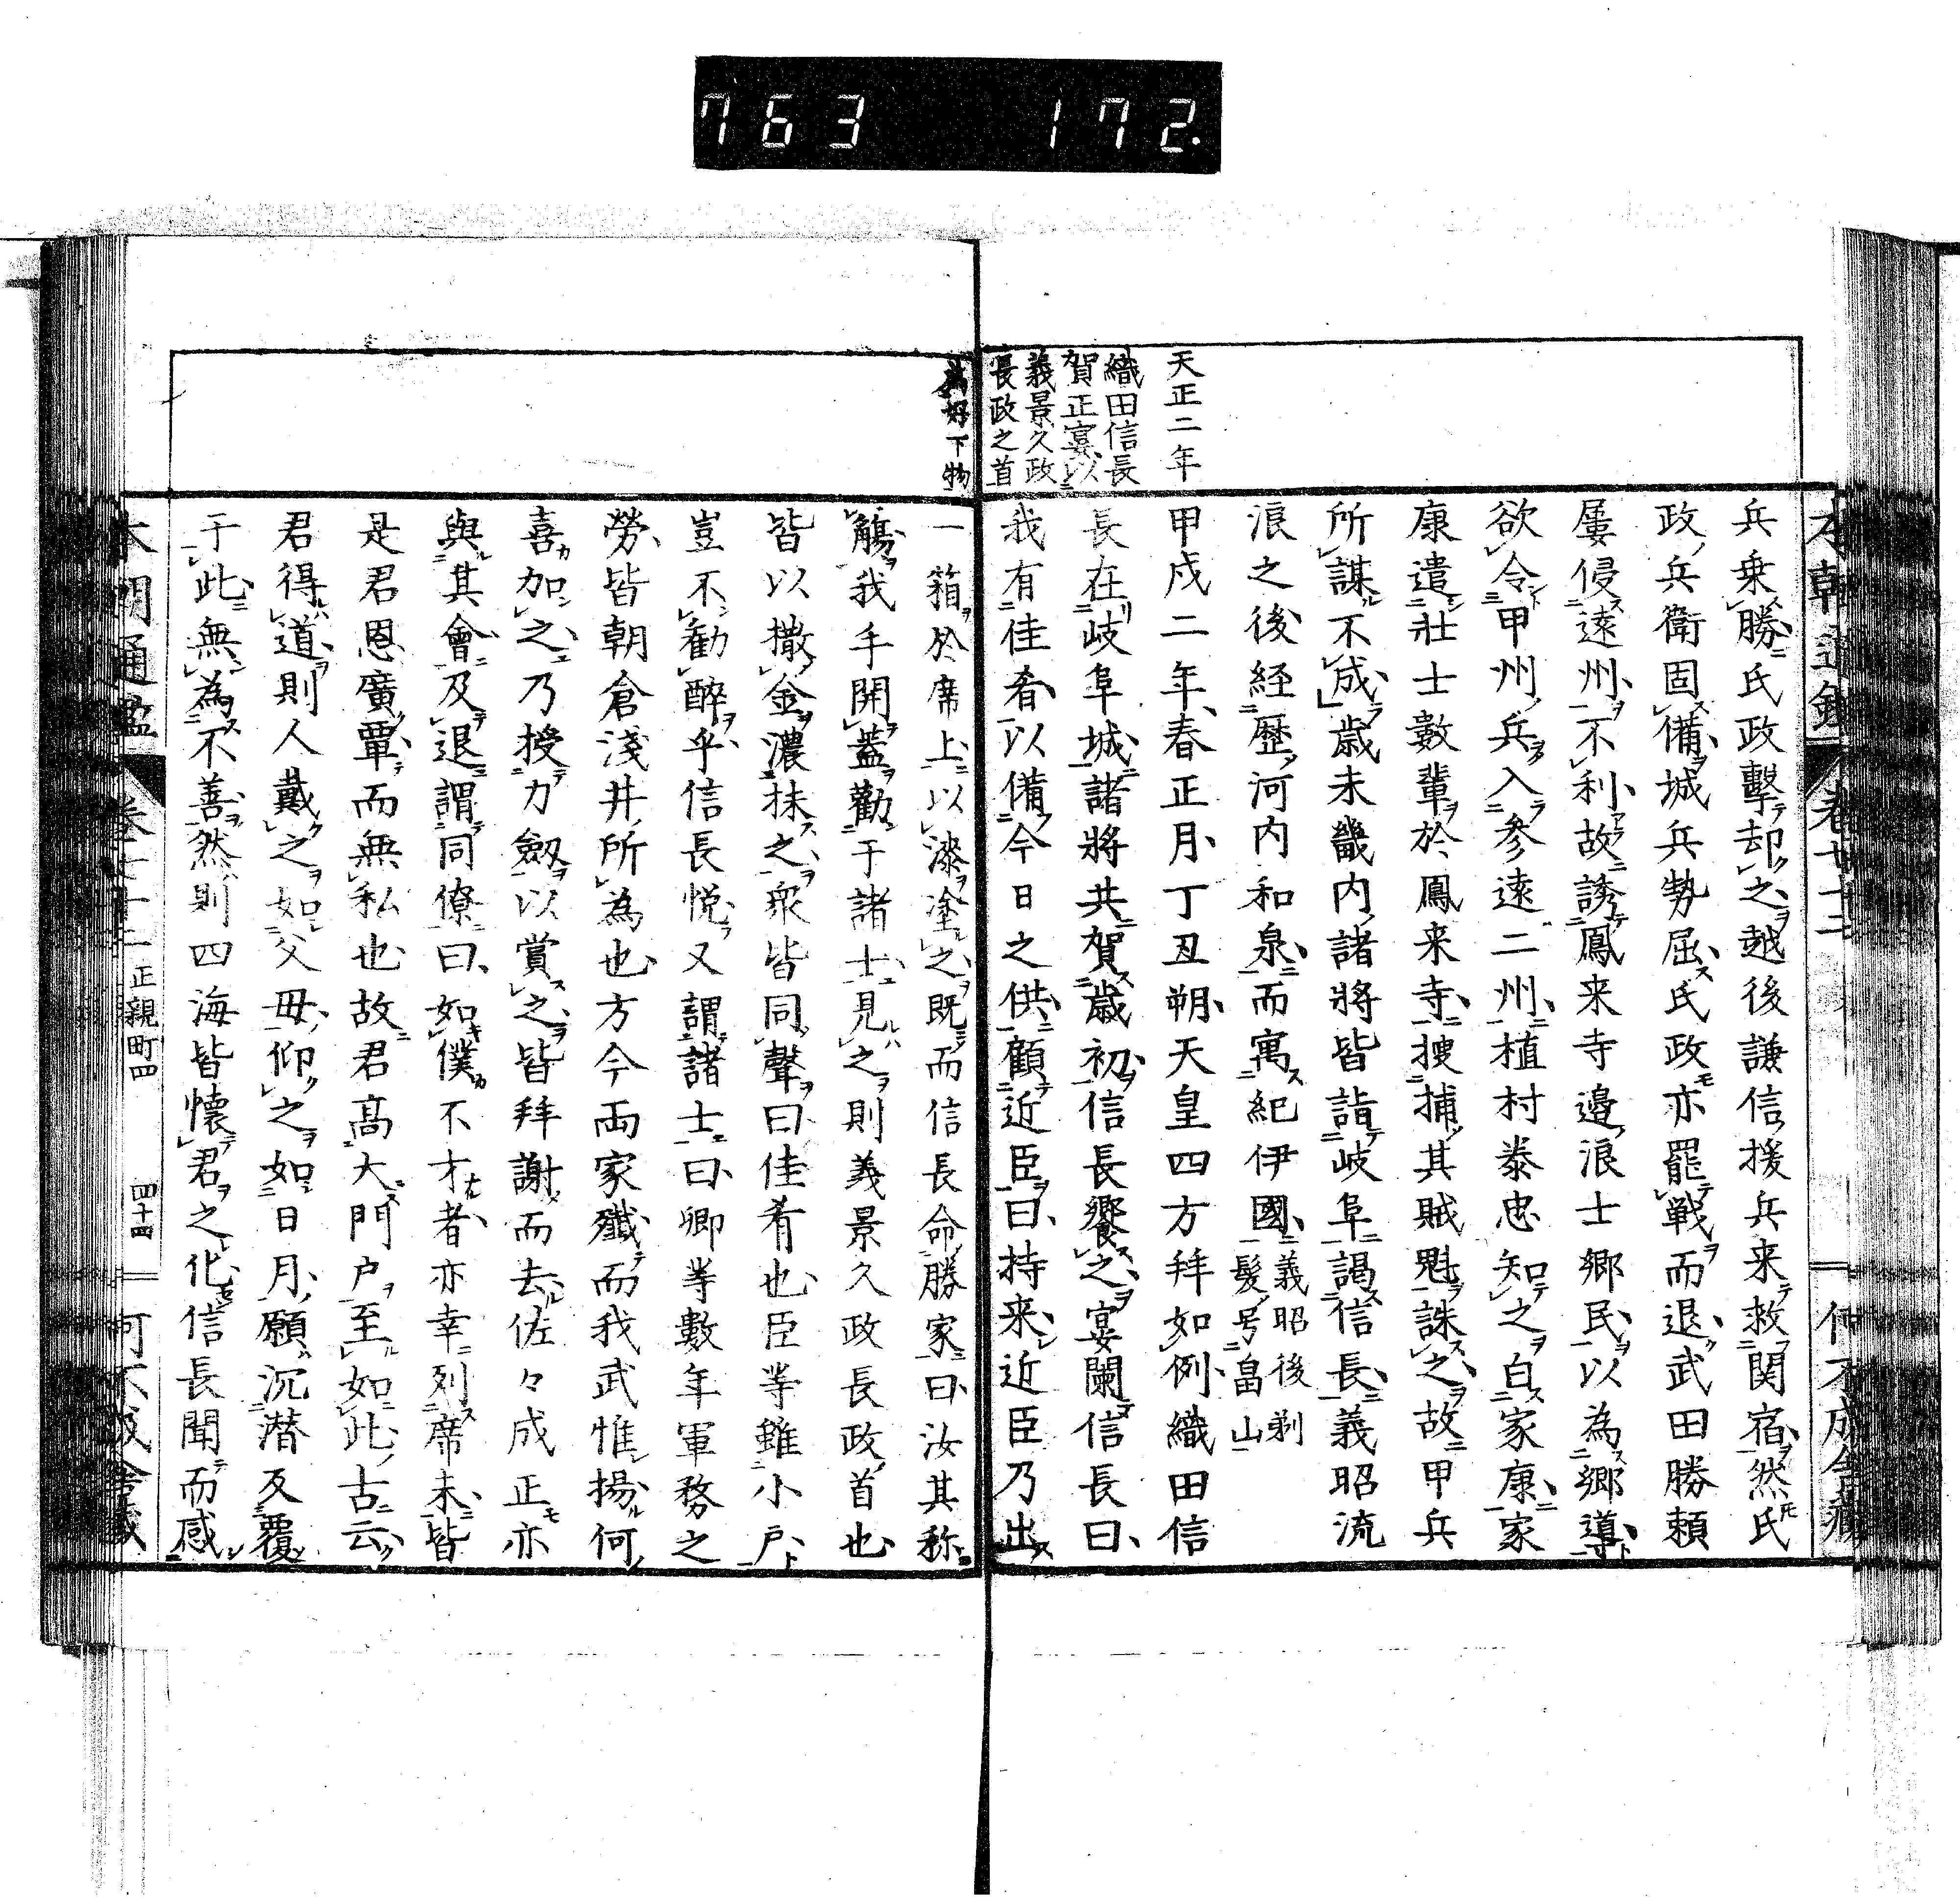 763 172.
本朝通鑑 卷七十二 何不成舍藏
兵乗勝氏政擊却之越後謙信援兵来救関宿然氏
政兵衛固備城兵勢屈氏政亦罷戰而退武田勝頼
屢侵遠州不利故誘鳳来寺邉浪士郷民以為郷導
欲令甲州兵入参遠二州植村泰忠知之白家康家
康遣壮士數輩於鳳来寺捜捕其賊魁誅之故甲兵
所謀不成歳末畿内諸將皆詣岐阜謁信長義昭流
浪之後経歴河内和泉而寓紀伊國義昭後剃
髮号畠山
天正二年
甲戍二年春正月丁丑朔天皇四方拜如例織田信
織田信長
賀正宴以
義景久政
長政之首
長在岐阜城諸將共賀歳初信長饗之宴闌信長曰
我有佳肴以備今日之供顧近臣曰持来近臣乃出
為好下物
一箱於席上以漆塗之既而信長命勝家曰汝其称
觴我手開蓋勸于諸士見之則義景久政長政首也
皆以撒金濃抹之衆皆同聲曰佳肴也臣等雖小戸
豈不勸醉乎信長悦又謂諸士曰卿等數年軍務之
勞皆朝倉淺井所為也方今両家殲而我武惟揚何
喜加之乃授刀劔以賞之皆拜謝而去佐々成正亦
與其會及退謂同僚曰如僕不才者亦幸列席末皆
是君恩廣覃而無私也故君高大門戸至如此古云
君得道則人戴之如父母仰之如日月願沉潜反覆
于此無為不善然則四海皆懐君之化信長聞而感
本朝通鑑 卷七十二 正親町四 四十四 何不成舍藏